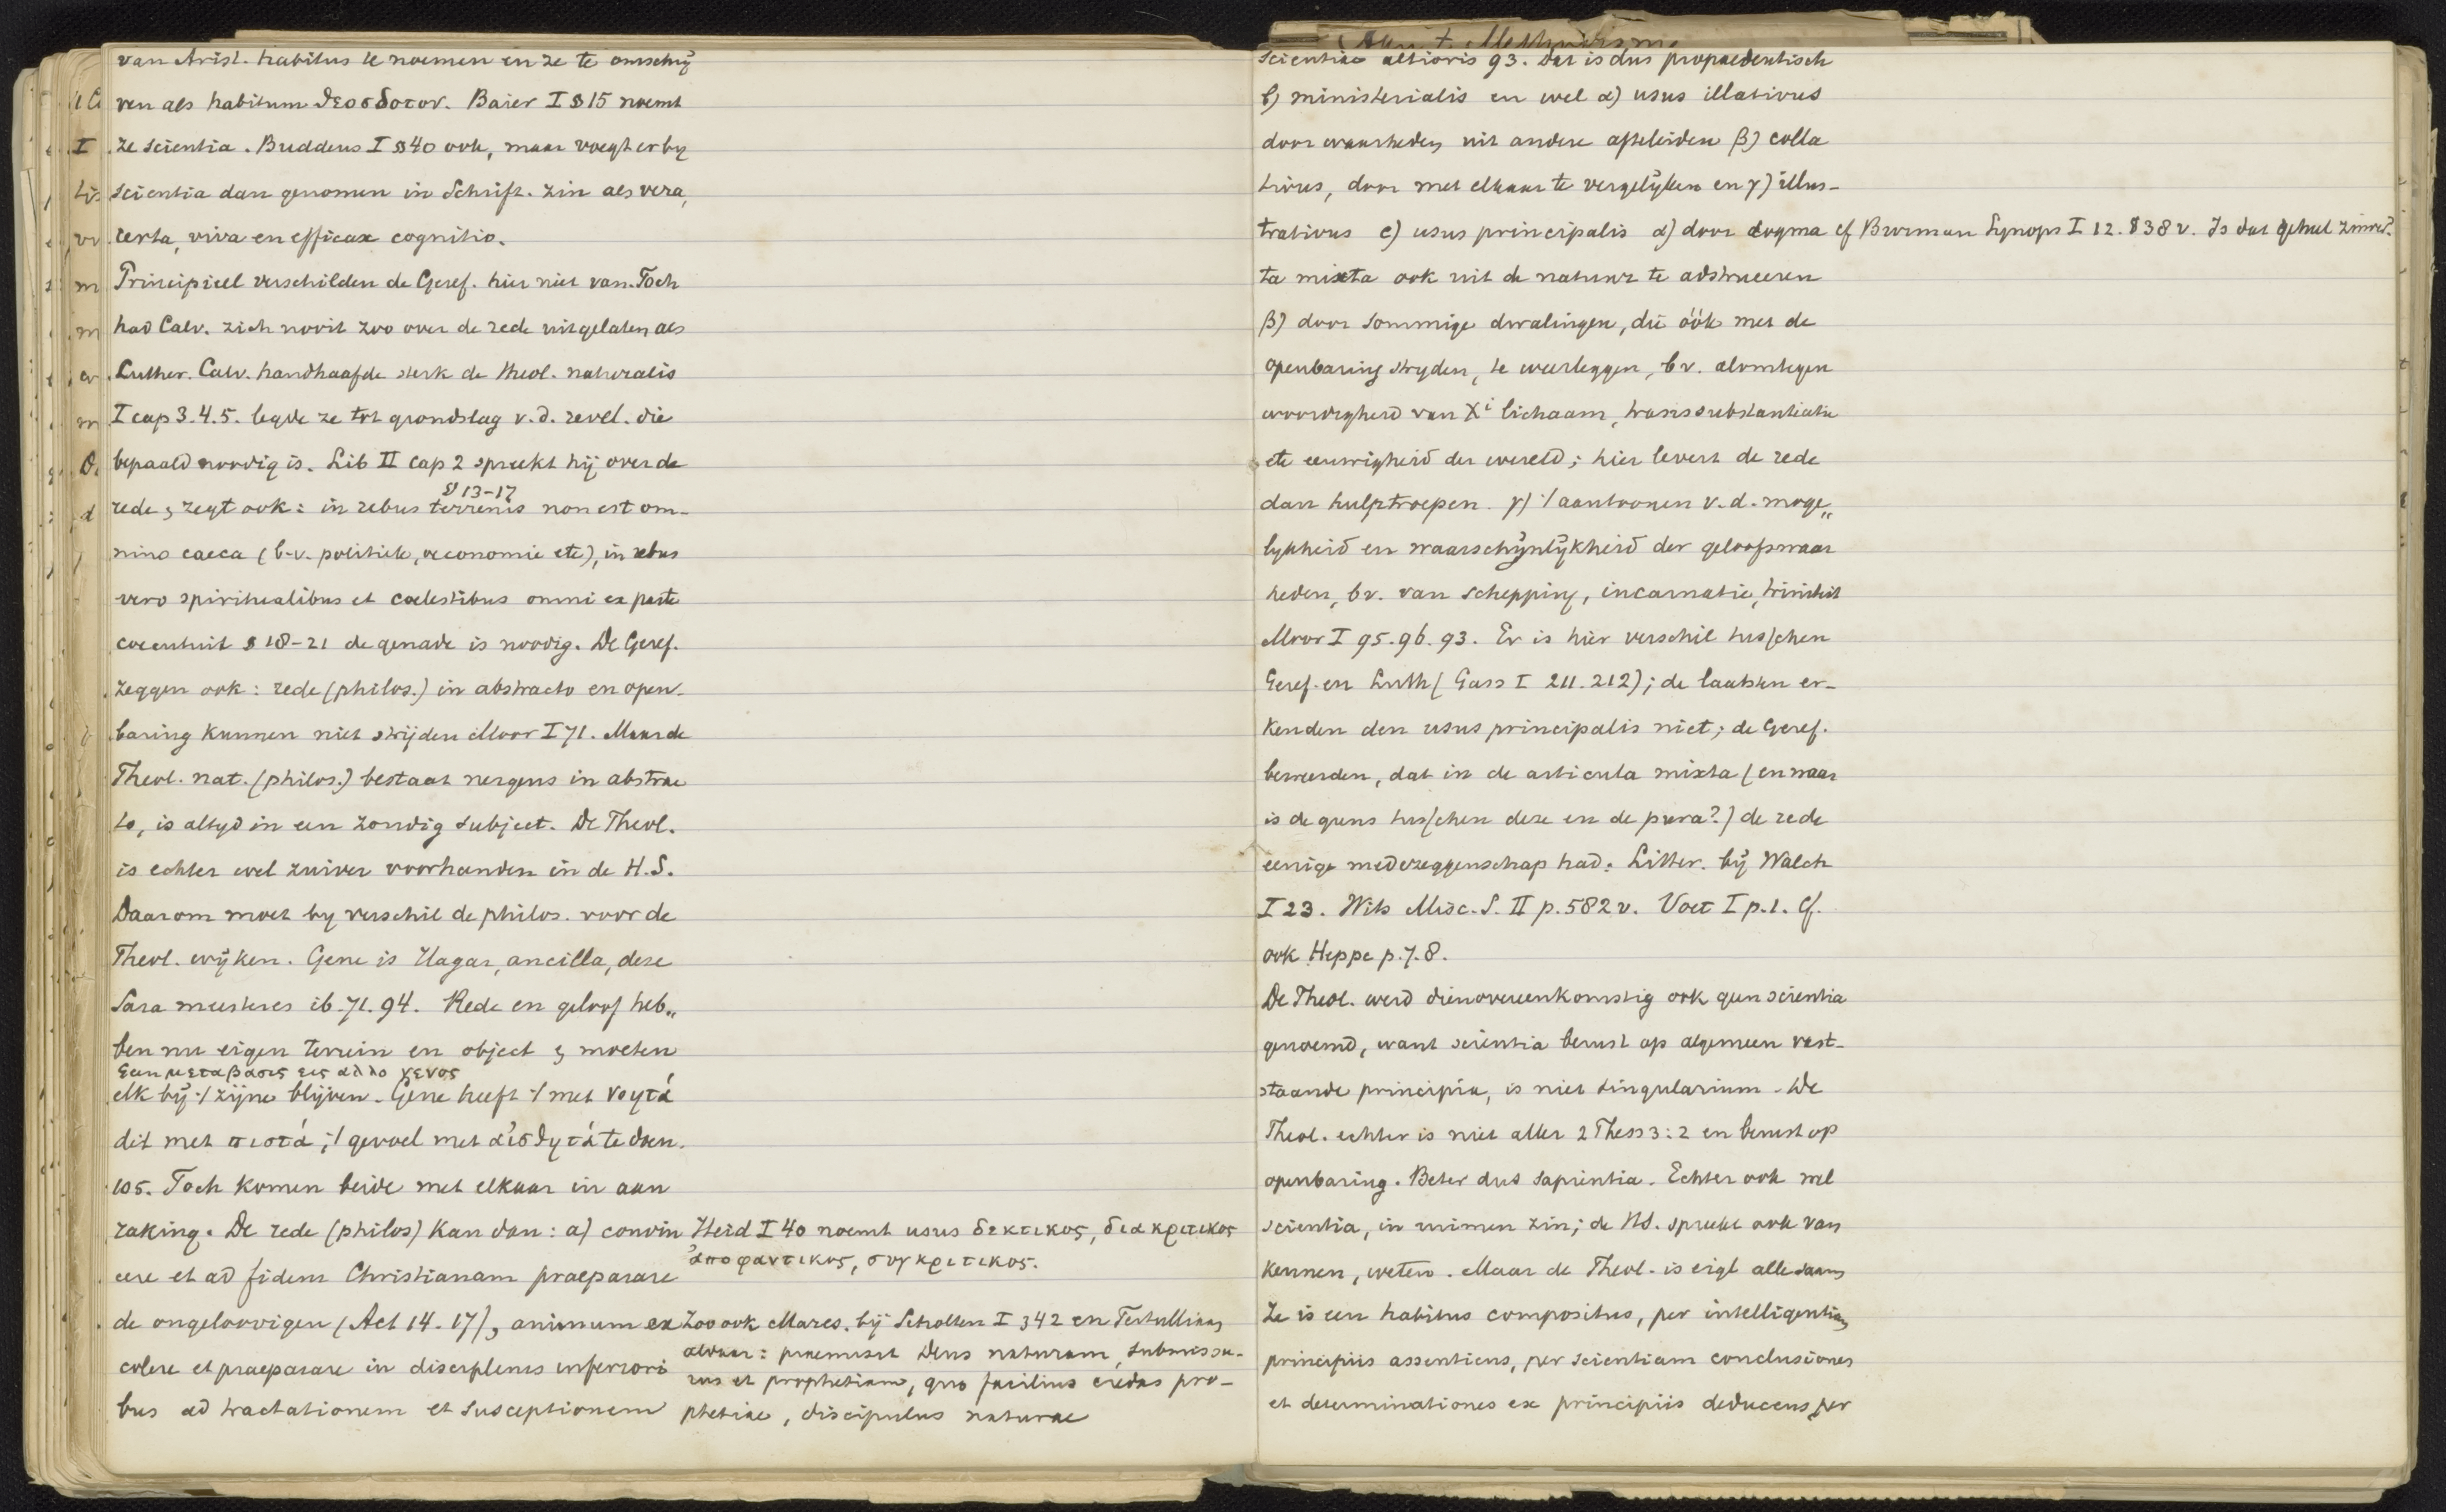 van Arist. habitus te noemen en ze te omschrij
ven als habitum θεοσδοτον. Baier I § 15 noemt
ze scientia. Buddeus I § 40 ook, maar voegt er by
scientia dan genomen in Schrift. zin als vera,
certa, viva en efficax cognitio.
Principieel verschilden de Geref. hier niet van. Toch
had Calv. zich nooit zoo over de rede uitgelaten als
Luther. Calv. handhaafde sterk de theol. naturalis
I cap 3.4.5. legde ze tot grondslag v.d. revel. die
bepaald noodig is. Lib II cap 2 spreekt hij over de
§ 13-17
rede, zegt ook: in rebus terrenis non est om-
nino caeca (b.v. politiek, oeconomie etc), in rebus
vero spiritualibus et coelestibus omni ex parte
coecutuit § 18-21 de genade is noodig. De Geref.
zeggen ook: rede (philos.) in abstracto en open-
baring kunnen niet strijden Moor I 71. Maar de
Theol. nat. (philos.) bestaat nergens in abstrac
to, is altyd in een zondig subject. De Theol.
is echter wel zuiver voorhanden in de H.S.
Daarom moet by verschil de philos. voor de
Theol. wijken. Gene is Hagar, ancilla, deze
Sara meesteres ib. 71. 94. Rede en geloof heb„
ben nu eigen terrein en object & moeten
Geen μεταβασις εις αλλο γενος
elk bij 't zijne blijven. Gene heeft 't met νοητά
dit met πιστά; 't gevoel met αἰσθητά te doen.
105. Toch komen beide met elkaar in aan
raking. De rede (philos) kan dan: a) convin
cere et ad fidem Christianam praeparare
de ongeloovigen (Act 14. 17), animum ex
colere et praeparare in disciplinis inferiori
bus ad tractationem et susceptionem
Heid I 40 noemt usus δεκτικος, διακριτικος
ἀποφαντικος, συγκριτικος.
Zoo ook Mares. bij Scholten I 342 en Tertullianus
aldaar: praemisit Deus naturam, submissu-
rus et prophetiam, quo facilius credas pro-
phetiae, discipulus naturae
scientiae altioris 93. Dat is dus propaedeutisch
b) ministerialis en wel α) usus illativus
door waarheden uit andere afteleiden β) colla
tivus, door met elkaar te vergelijken en γ) illus-
trativus c) usus principalis α) door dogma cf Burman Synops I 12. § 38 v. Is dat geheel zuiver?
ta mixta ook uit de natuur te adstrueeren
β) door sommige dwalingen, die óók met de
openbaring stryden, te weerleggen, bv. alomtegen
woordigheid van Xi lichaam, transsubstantiatie
etc eeuwigheid der wereld; hier levert de rede
dan hulptroepen. γ) 't aantoonen v.d. moge„
lykheid en waarschijnlijkheid der geloofswaar
heden, bv. van schepping, incarnatie, triniteit
Moor I 95. 96. 93. Er is hier verschil tusschen
Geref. en Luth (Gass I 211. 212); de laatsten er-
kenden den usus principalis niet; de Geref.
beweerden, dat in de articula mixta (en waar
is de grens tusschen deze en de pura?) de rede
eenige medezeggenschap had. Litter. bij Walch
I 23. Wits Misc. S. II p. 582 v. Voet I p. 1. Cf.
ook Heppe p. 7. 8.
De Theol. werd dienovereenkomstig ook geen scientia
genoemd, want scientia berust op algemeen vast-
staande principia, is niet singularium. De
Theol. echter is niet aller 2 Thess 3:2 en berust op
openbaring. Beter dus sapientia. Echter ook wel
scientia, in ruimen zin; de HS. spreekt ook van
kennen, weten. Maar de Theol. is eigl alle saam
Ze is een habitus compositus, per intelligentiam
principiis assentiens, per scientiam conclusiones
et determinationes ex principiis deducens, per